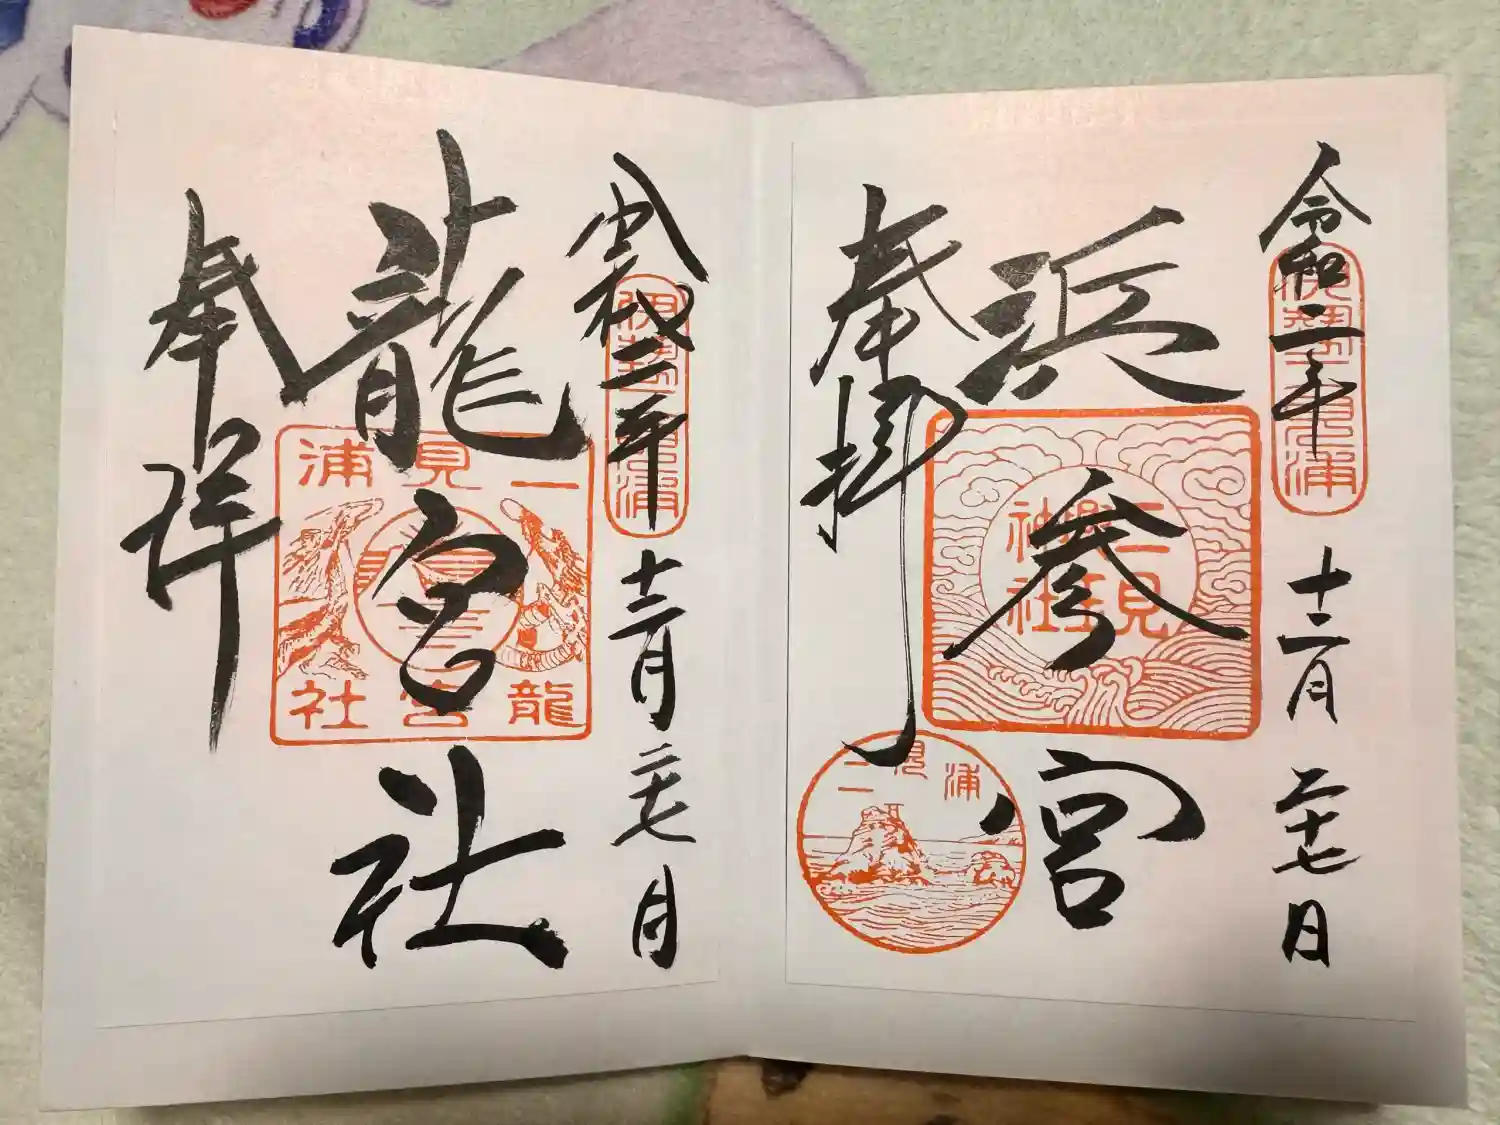 令和二年 十二月 二十七日
伊勢二見浦
浜参宮
二見興玉神社
奉拝
二見浦
令和二年 十二月 二十七日
伊勢二見浦
龍宮社
二見浦
龍宮社
奉拝